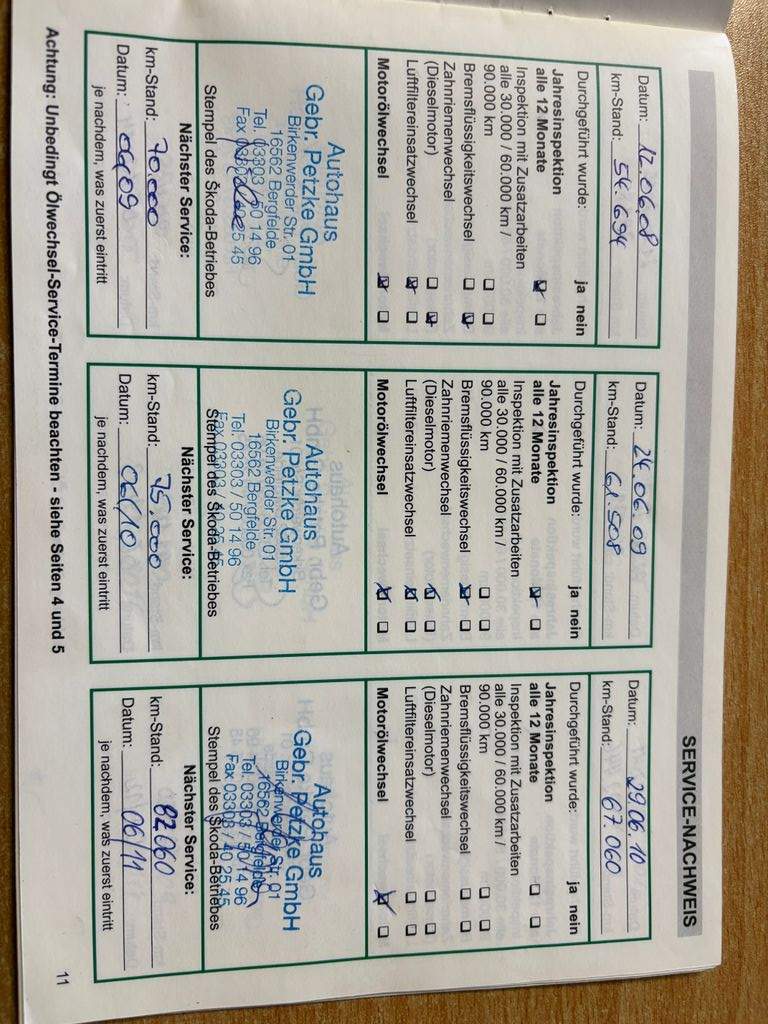 SERVICE-NACHWEIS
Datum: 12.06.08
km-Stand: 54.694
Durchgeführt wurde: ja nein
Jahresinspektion
alle 12 Monate
Inspektion mit Zusatzarbeiten
alle 30.000 / 60.000 km /
90.000 km
Bremsflüssigkeitswechsel
Zahnriemenwechsel
(Dieselmotor)
Luftfiltereinsatzwechsel
Motorölwechsel
Autohaus
Gebr. Petzke GmbH
Birkenwerder Str. 01
16562 Bergfelde
Tel. 03303 / 50 14 96
Fax 03303 / 40 25 45
Stempel des Škoda-Betriebes
Nächster Service:
km-Stand: 70.000
Datum: 06/09
je nachdem, was zuerst eintritt
Datum: 24.06.09
km-Stand: 61.508
Durchgeführt wurde: ja nein
Jahresinspektion
alle 12 Monate
Inspektion mit Zusatzarbeiten
alle 30.000 / 60.000 km /
90.000 km
Bremsflüssigkeitswechsel
Zahnriemenwechsel
(Dieselmotor)
Luftfiltereinsatzwechsel
Motorölwechsel
Autohaus
Gebr. Petzke GmbH
Birkenwerder Str. 01
16562 Bergfelde
Tel. 03303 / 50 14 96
Fax 03303 / 40 25 45
Stempel des Škoda-Betriebes
Nächster Service:
km-Stand: 75.000
Datum: 06/10
je nachdem, was zuerst eintritt
Datum: 29.06.10
km-Stand: 67.060
Durchgeführt wurde: ja nein
Jahresinspektion
alle 12 Monate
Inspektion mit Zusatzarbeiten
alle 30.000 / 60.000 km /
90.000 km
Bremsflüssigkeitswechsel
Zahnriemenwechsel
(Dieselmotor)
Luftfiltereinsatzwechsel
Motorölwechsel
Autohaus
Gebr. Petzke GmbH
Birkenwerder Str. 01
16562 Bergfelde
Tel. 03303 / 50 14 96
Fax 03303 / 40 25 45
Stempel des Škoda-Betriebes
Nächster Service:
km-Stand: 82.060
Datum: 06/11
je nachdem, was zuerst eintritt
Achtung: Unbedingt Ölwechsel-Service-Termine beachten - siehe Seiten 4 und 5
11